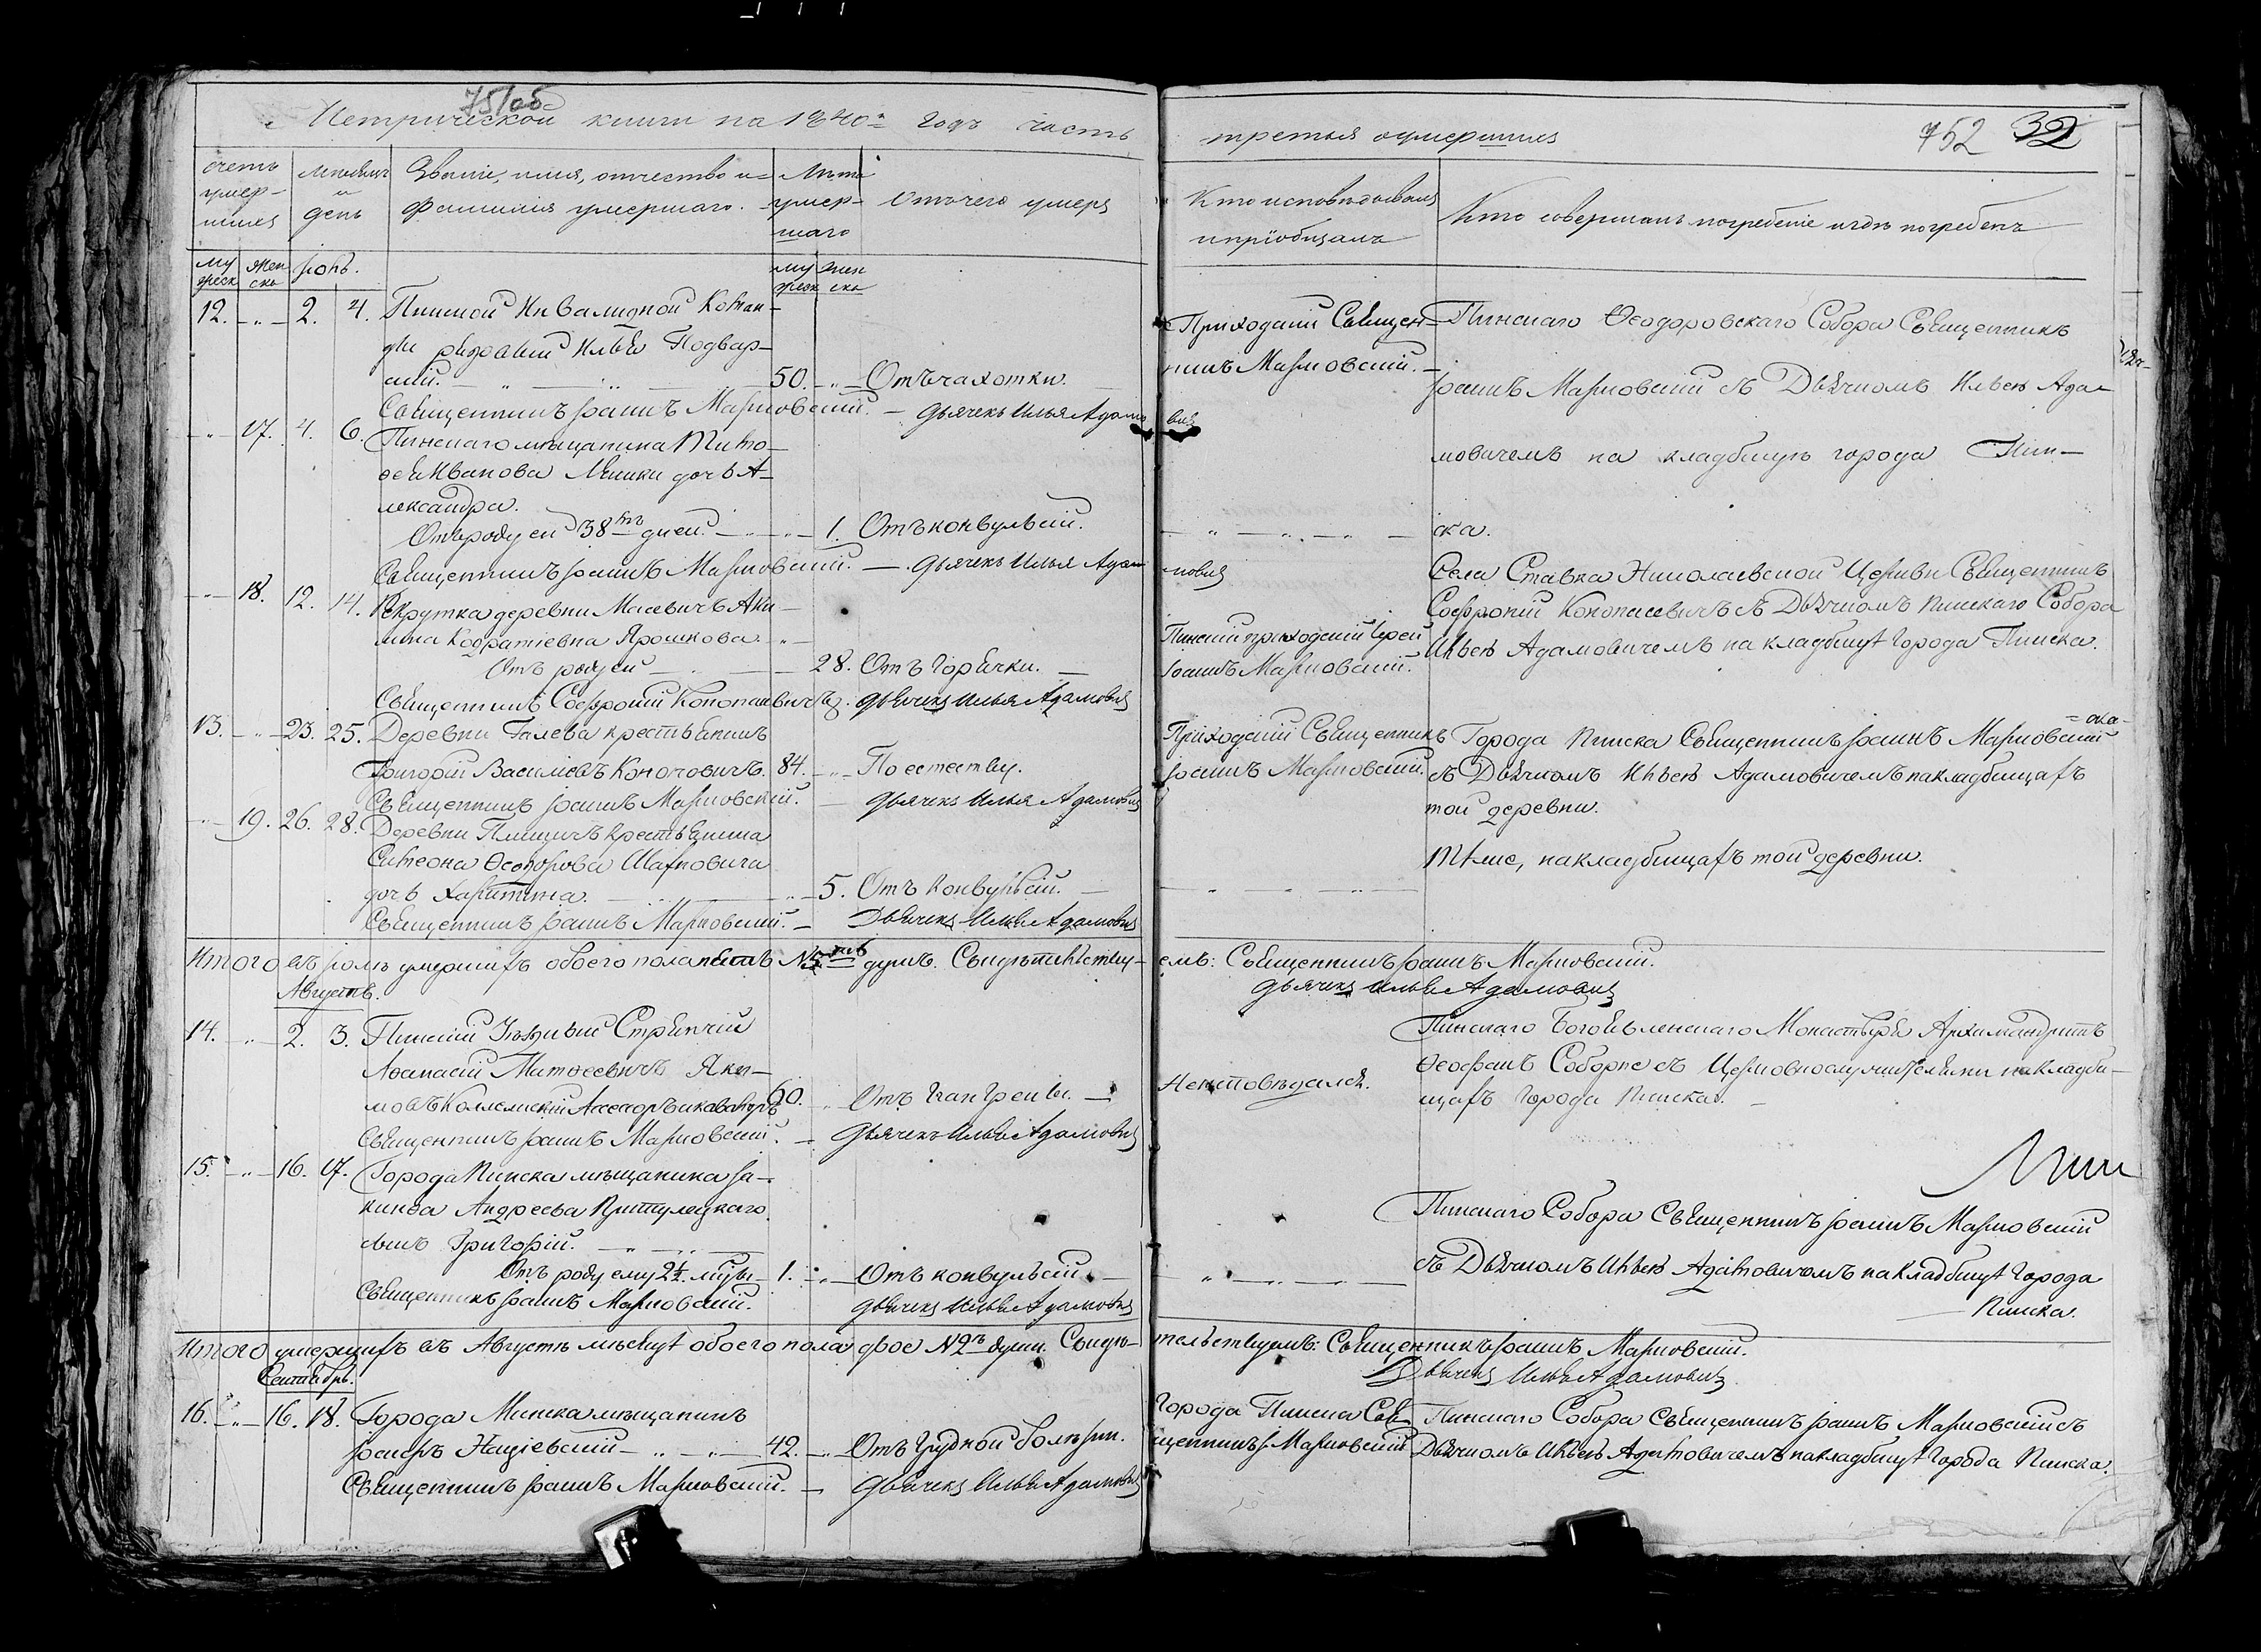 751об
Метрической книги на 1840й годъ часть
третья о умершихъ
752 32
счетъ умер-шихъ
мѣсяцъ и день
Званіе, имя, отчество и фамилія умершаго.
Лѣта умер-шаго
Отъ чего умеръ
Кто исповѣдывалъ и пріобщалъ
Кто совершалъ погребеніе и гдѣ погребенъ
му жеск
жен ска
Іюль.
му жеск
жен ска
12. - " - 2. 4. Пинской Инвалидной Коман-
ды рядовый Илья Подвар-
скій. - " - 50. - " - Отъ чахотки.
Священникъ Іоаннъ Марковскій. - Дьячекъ Илья Адамо
вичъ
Приходскій Священ-
никъ Марковскій. -
Пинскаго Ѳеодоровскаго Собора Священникъ
Іоаннъ Марковскій съ Дьячкомъ Ильею Ада-
мовичемъ на кладбищѣ города Пин-
ска.
- " - 17. 4. 6. Пинскаго мѣщанина Тимо-
ѳея Иванова дочь А-
лександра.
Отъ роду ей 38мъ дней. - " - 1. Отъ конвульсіи.
Священникъ Іоаннъ Марковскій. - Дьячекъ Илья Адам
мовичъ
- " - 18. 12. 14. Рекрутка деревни Масевичъ Аки-
лина Кодратіевна Ярошкова. - " -
Отъ роду ей - 28. Отъ Горячки. -
Священникъ Софроній Конопасевичъ. Дьячекъ Илья Адамовичъ
Пинскій приходскій Іерей
Іоаннъ Марковскій.
Села Ставка Николаевской Церкви Священникъ
Софроній Конопасевичъ съ Дьячкомъ Пинскаго Собора
Ильею Адамовичемъ на кладбищѣ города Пинска.
13. - " - 23. 25. Деревни Галева крестьянинъ
Григорій Василіевъ Кононовичъ. 84. - " - По естеству.
Священникъ Іоаннъ Марковскій. - Дьячекъ Илья Адамовичъ
Приходскій Священникъ
Іоаннъ Марковскій.
Города Пинска Священникъ Іоаннъ Марковскій
съ Дьячкомъ Ильею Адамовичемъ на кладбищахъ
той деревни.
- " - 19. 26. 28. Деревни Плещичъ крестьянина
Симеона Ѳеодорова Шафновича
дочь Харитина. - " - 5. Отъ Конвульсіи. -
Священникъ Іоаннъ Марковскій. - Дьячекъ Илья Адамовичъ
Тѣже, на кладбищахъ той деревни.
Итого въ Іюлѣ умершихъ обоего пола пять №5ть душъ. Свидѣтельству-
емъ: Священникъ Іоаннъ Марковскій.
Дьячекъ Илья Адамовичъ
Августъ.
14. - " - 2. 3. Пинскій Уѣздный Стряпчій
Аѳанасій Матѳеевичъ Яки-
мовъ Коллежскій Ассесоръ и кавалеръ 60. - " - Отъ Гангрены. -
Священникъ Іоаннъ Марковскій. - Дьячекъ Илья Адамовичъ
Неисповѣдался.
Пинскаго Богоявленскаго Монастыря Архимандритъ
Ѳеофанъ Соборне съ Церковнослужителями на кладби-
щахъ города Пинска. -
15. - " - 16. 17. Города Пинска мѣщанина Іа-
кинѳа Андреева Притулецкаго
сынъ Григорій. - " -
Отъ роду ему 2½ мѣсяца - 1. - " - Отъ конвульсіи. -
Священникъ Іоаннъ Марковскій. Дьячекъ Илья Адамовичъ
Пинскаго Собора Священникъ Іоаннъ Марковскій
съ Дьячкомъ Ильею Адамовичемъ на кладбищѣ города
Пинска.
Итого умершихъ въ Августѣ мѣсяцѣ обоего пола двое №2ъ души. Свидѣ-
тельствуемъ: Священникъ Іоаннъ Марковскій.
Дьячекъ Илья Адамовичъ
Сентябрь.
16. - " - 16. 18. Города Минска мѣщанинъ
- " - 42. - " - Отъ Грудной болѣзни.
Священникъ Іоаннъ Марковскій. - Дьячекъ Илья Адамовичъ
Города Пинска Свя-
щенникъ І. Марковскій
Пинскаго Собора Священникъ Іоаннъ Марковскій съ
Дьячкомъ Ильею Адамовичемъ на кладбищѣ города Пинска.